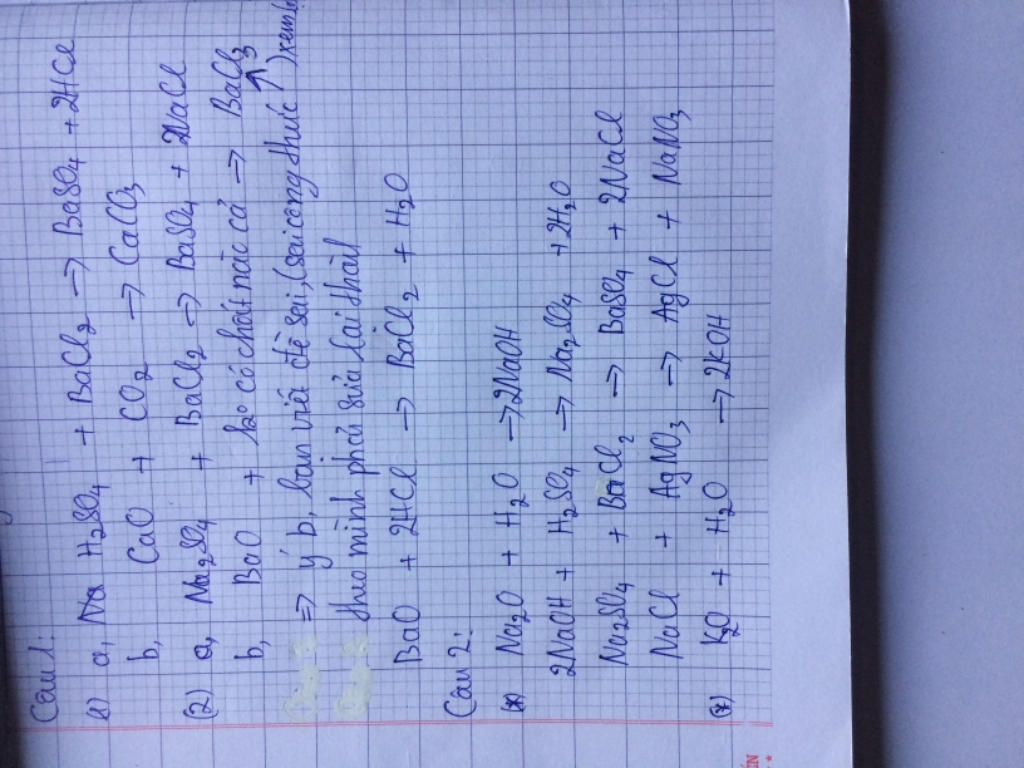 Câu 1:
(1) a, Na H₂SO₄ + BaCl₂ → BaSO₄ + 2HCl
b, CaO + CO₂ → CaCO₃
(2) a, Na₂SO₄ + BaCl₂ → BaSO₄ + 2NaCl
b, BaO + ko có chất nào cả → BaCl₃
=> ý b, bạn viết đề sai, (sai công thức ↑) xem
theo mình phải sửa lại thành
BaO + 2HCl → BaCl₂ + H₂O
Câu 2:
(*) Na₂O + H₂O → 2NaOH
2NaOH + H₂SO₄ → Na₂SO₄ + 2H₂O
Na₂SO₄ + BaCl₂ → BaSO₄ + 2NaCl
NaCl + AgNO₃ → AgCl + NaNO₃
(*) K₂O + H₂O → 2KOH